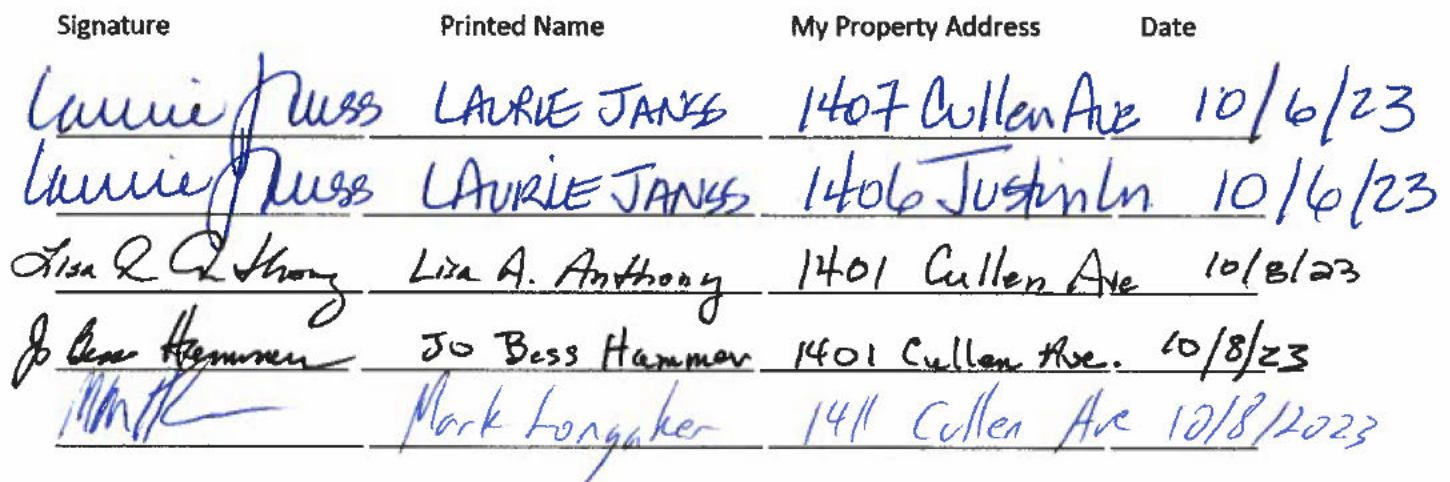 Signature Printed Name My Property Address Date
Laurie Janss LAURIE JANSS 1407 Cullen Ave 10/6/23
Laurie Janss LAURIE JANSS 1406 Justin Ln 10/6/23
Lisa A Anthony Lisa A. Anthony 1401 Cullen Ave 10/8/23
Jo Bess Hammer Jo Bess Hammer 1401 Cullen Ave. 10/8/23
Mark Longaker 1411 Cullen Ave 10/8/2023